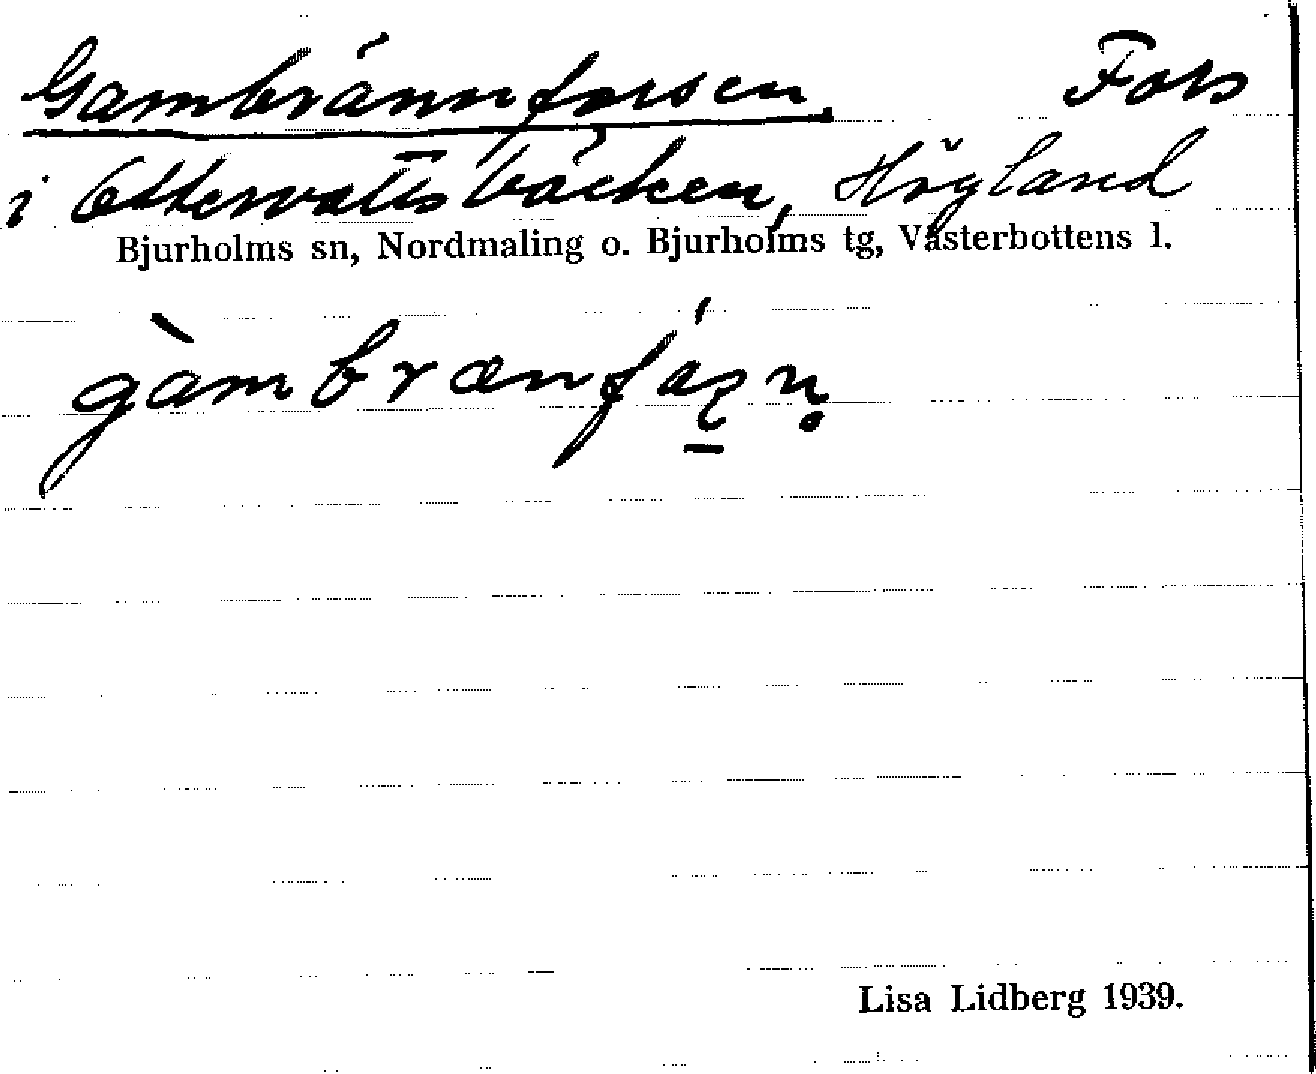 Gambrännforsen. Fors
i Ottervattsbäcken, Högland
Bjurholms sn, Nordmaling o. Bjurholms tg, Västerbottens l.
gàmbrænfáʂn̥
Lisa Lidberg 1939.